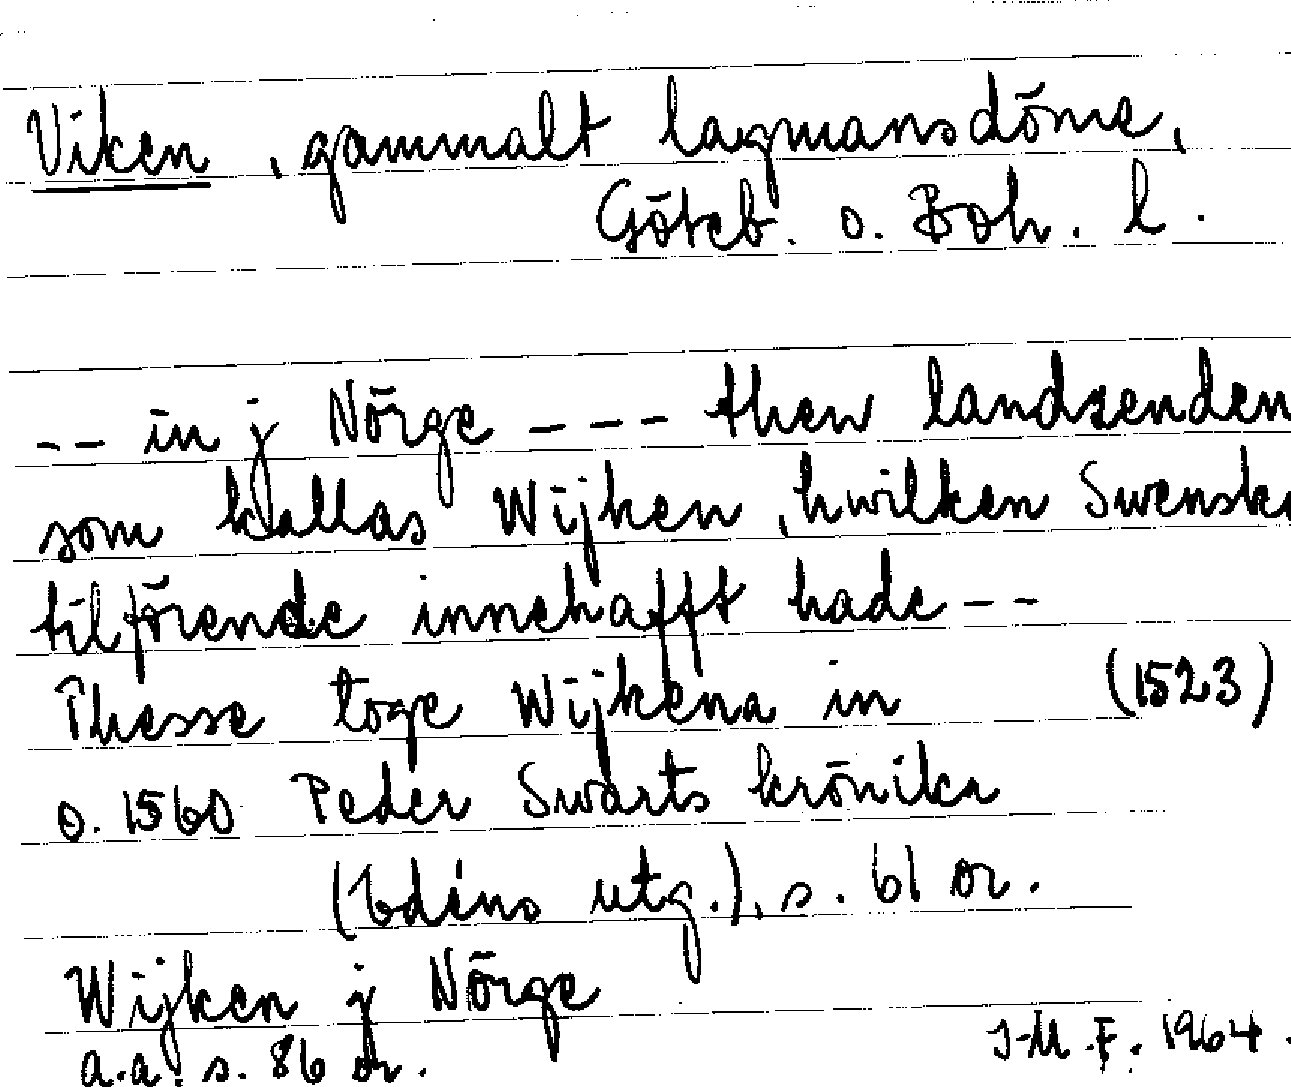 Viken, gammalt lagmansdöme,
Göteb. o. Boh. l.
-- in j Nörge --- then landzenden
som kallas Wijken, hwilken Swenske
tilförende innehafft hade --
Thesse toge Wijkena in (1523)
o. 1560 Peder Swarts krönika
(Edéns utg.), s. 61 or.
Wijken j Nörge
a.a. s. 86 or.
J-M.F. 1964.